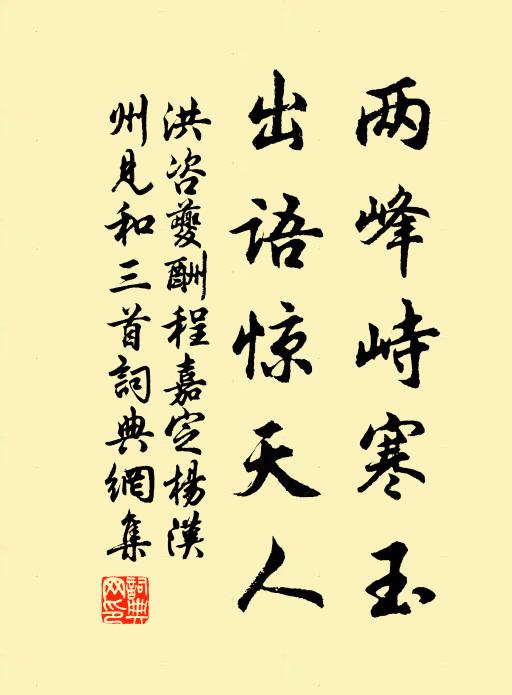 两峰峙寒玉
出語惊天人
洪咨夔酬程嘉定楊漢
州見和三首詞典網集
詞典网印